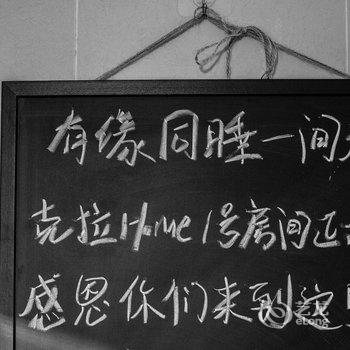 有缘同睡一间
克拉Home 1号房间正
感恩你们来到这里
艺龙
elong